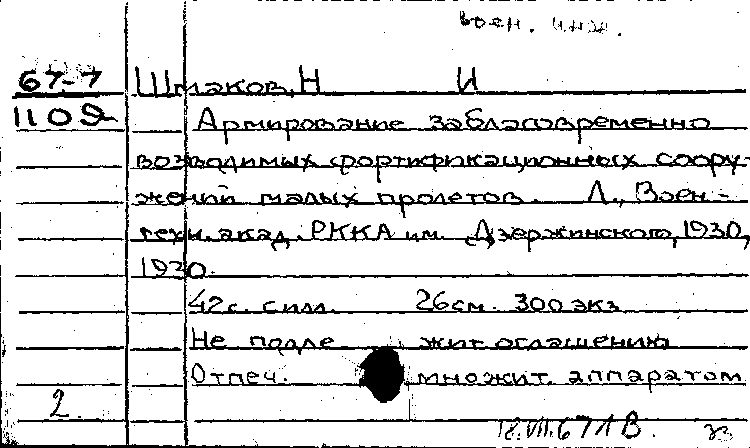 воен. инж.
67-7 Шмаков, Н И
1109 Армирование заблаговременно
возводимых фортификационных соору-
жений малых пролетов. Л., Воен-
техн. акад. РККА им. Дзержинского, 1930,
1930.
42 с. с илл. 26 см. 300 экз
Не подле жит оглашению
Отпеч. множит. аппаратом
2
12.VII.67 1 В. 23